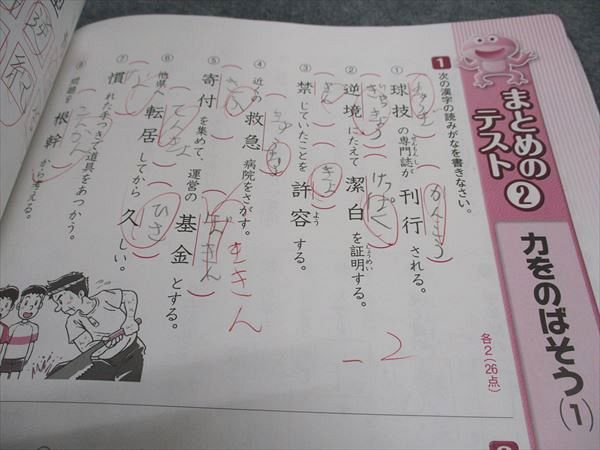 まとめのテスト②
力をのばそう(1)
1 次の漢字の読みがなを書きなさい。
各2(26点)
① 球技の専門誌が刊行される。
きゅうぎ
せんもんし
かんこう
② 逆境にたえて潔白を証明する。
ぎゃっきょう
けっぱく
しょうめい
③ 禁じていたことを許容する。
きん
きょ
よう
④ 近くの救急病院をさがす。
きゅうきゅう
⑤ 寄付を集めて、運営の基金とする。
きふ
ききん
-2
⑥ 他県に転居してから久しい。
てんきょ
ひさ
⑦ 慣れた手つきで道具をあつかう。
な
⑧ 問題を根幹から考える。
こんかん